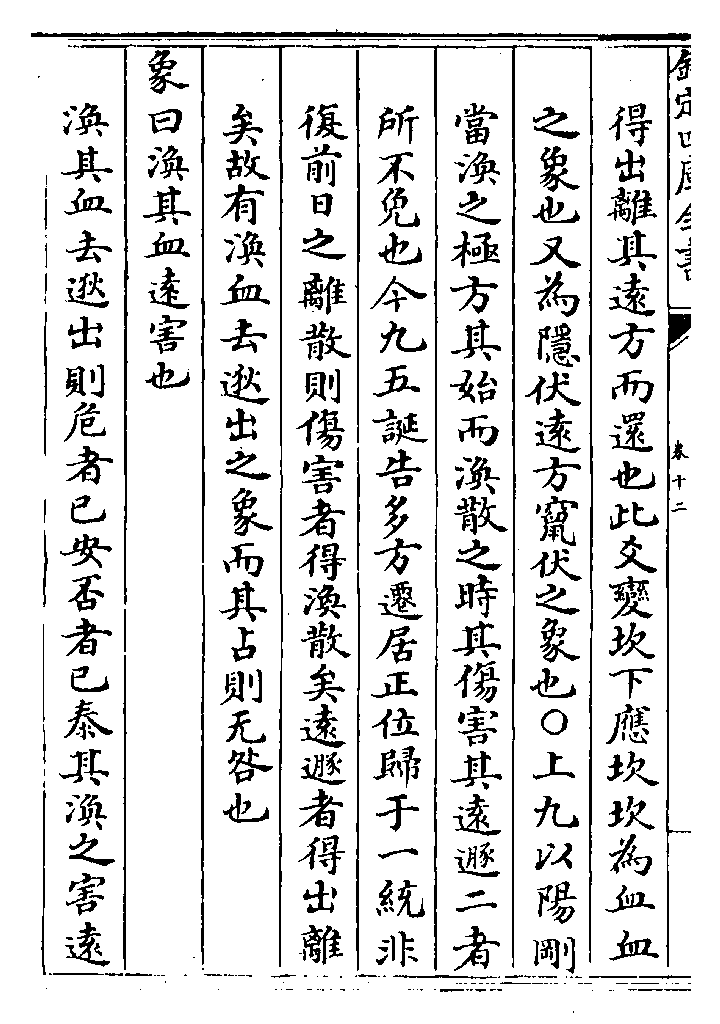 欽定四庫全書
卷十二
得出離其遠方而還也此爻變坎下應坎坎為血血
之象也又為隱伏遠方竄伏之象也○上九以陽剛
當渙之極方其始而渙散之時其傷害其遠遯二者
所不免也今九五誕告多方遷居正位歸于一統非
復前日之離散則傷害者得渙散矣遠遯者得出離
矣故有渙血去逖出之象而其占則无咎也
象曰渙其血遠害也
渙其血去逖出則危者已安否者已泰其渙之害遠